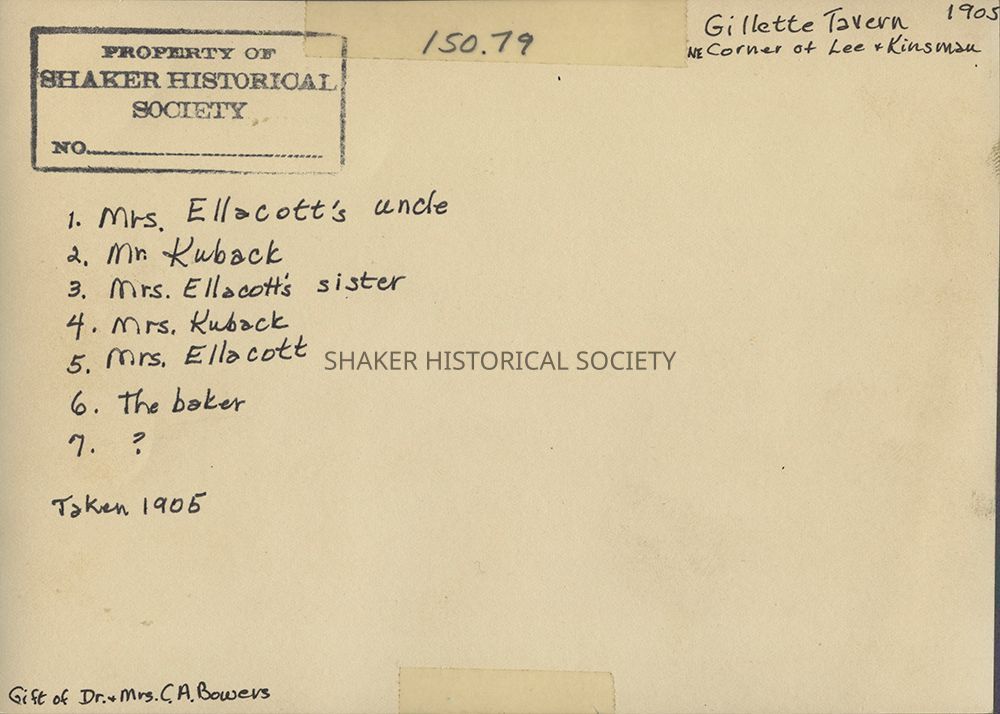 PROPERTY OF
SHAKER HISTORICAL
SOCIETY
NO.
150.79
Gillette Tavern 1905
NE Corner of Lee + Kinsman
1. Mrs. Ellacott's uncle
2. Mr. Kuback
3. Mrs. Ellacott's sister
4. Mrs. Kuback
5. Mrs. Ellacott
6. The baker
7. ?
Taken 1905
SHAKER HISTORICAL SOCIETY
Gift of Dr. + Mrs. C. A. Bowers